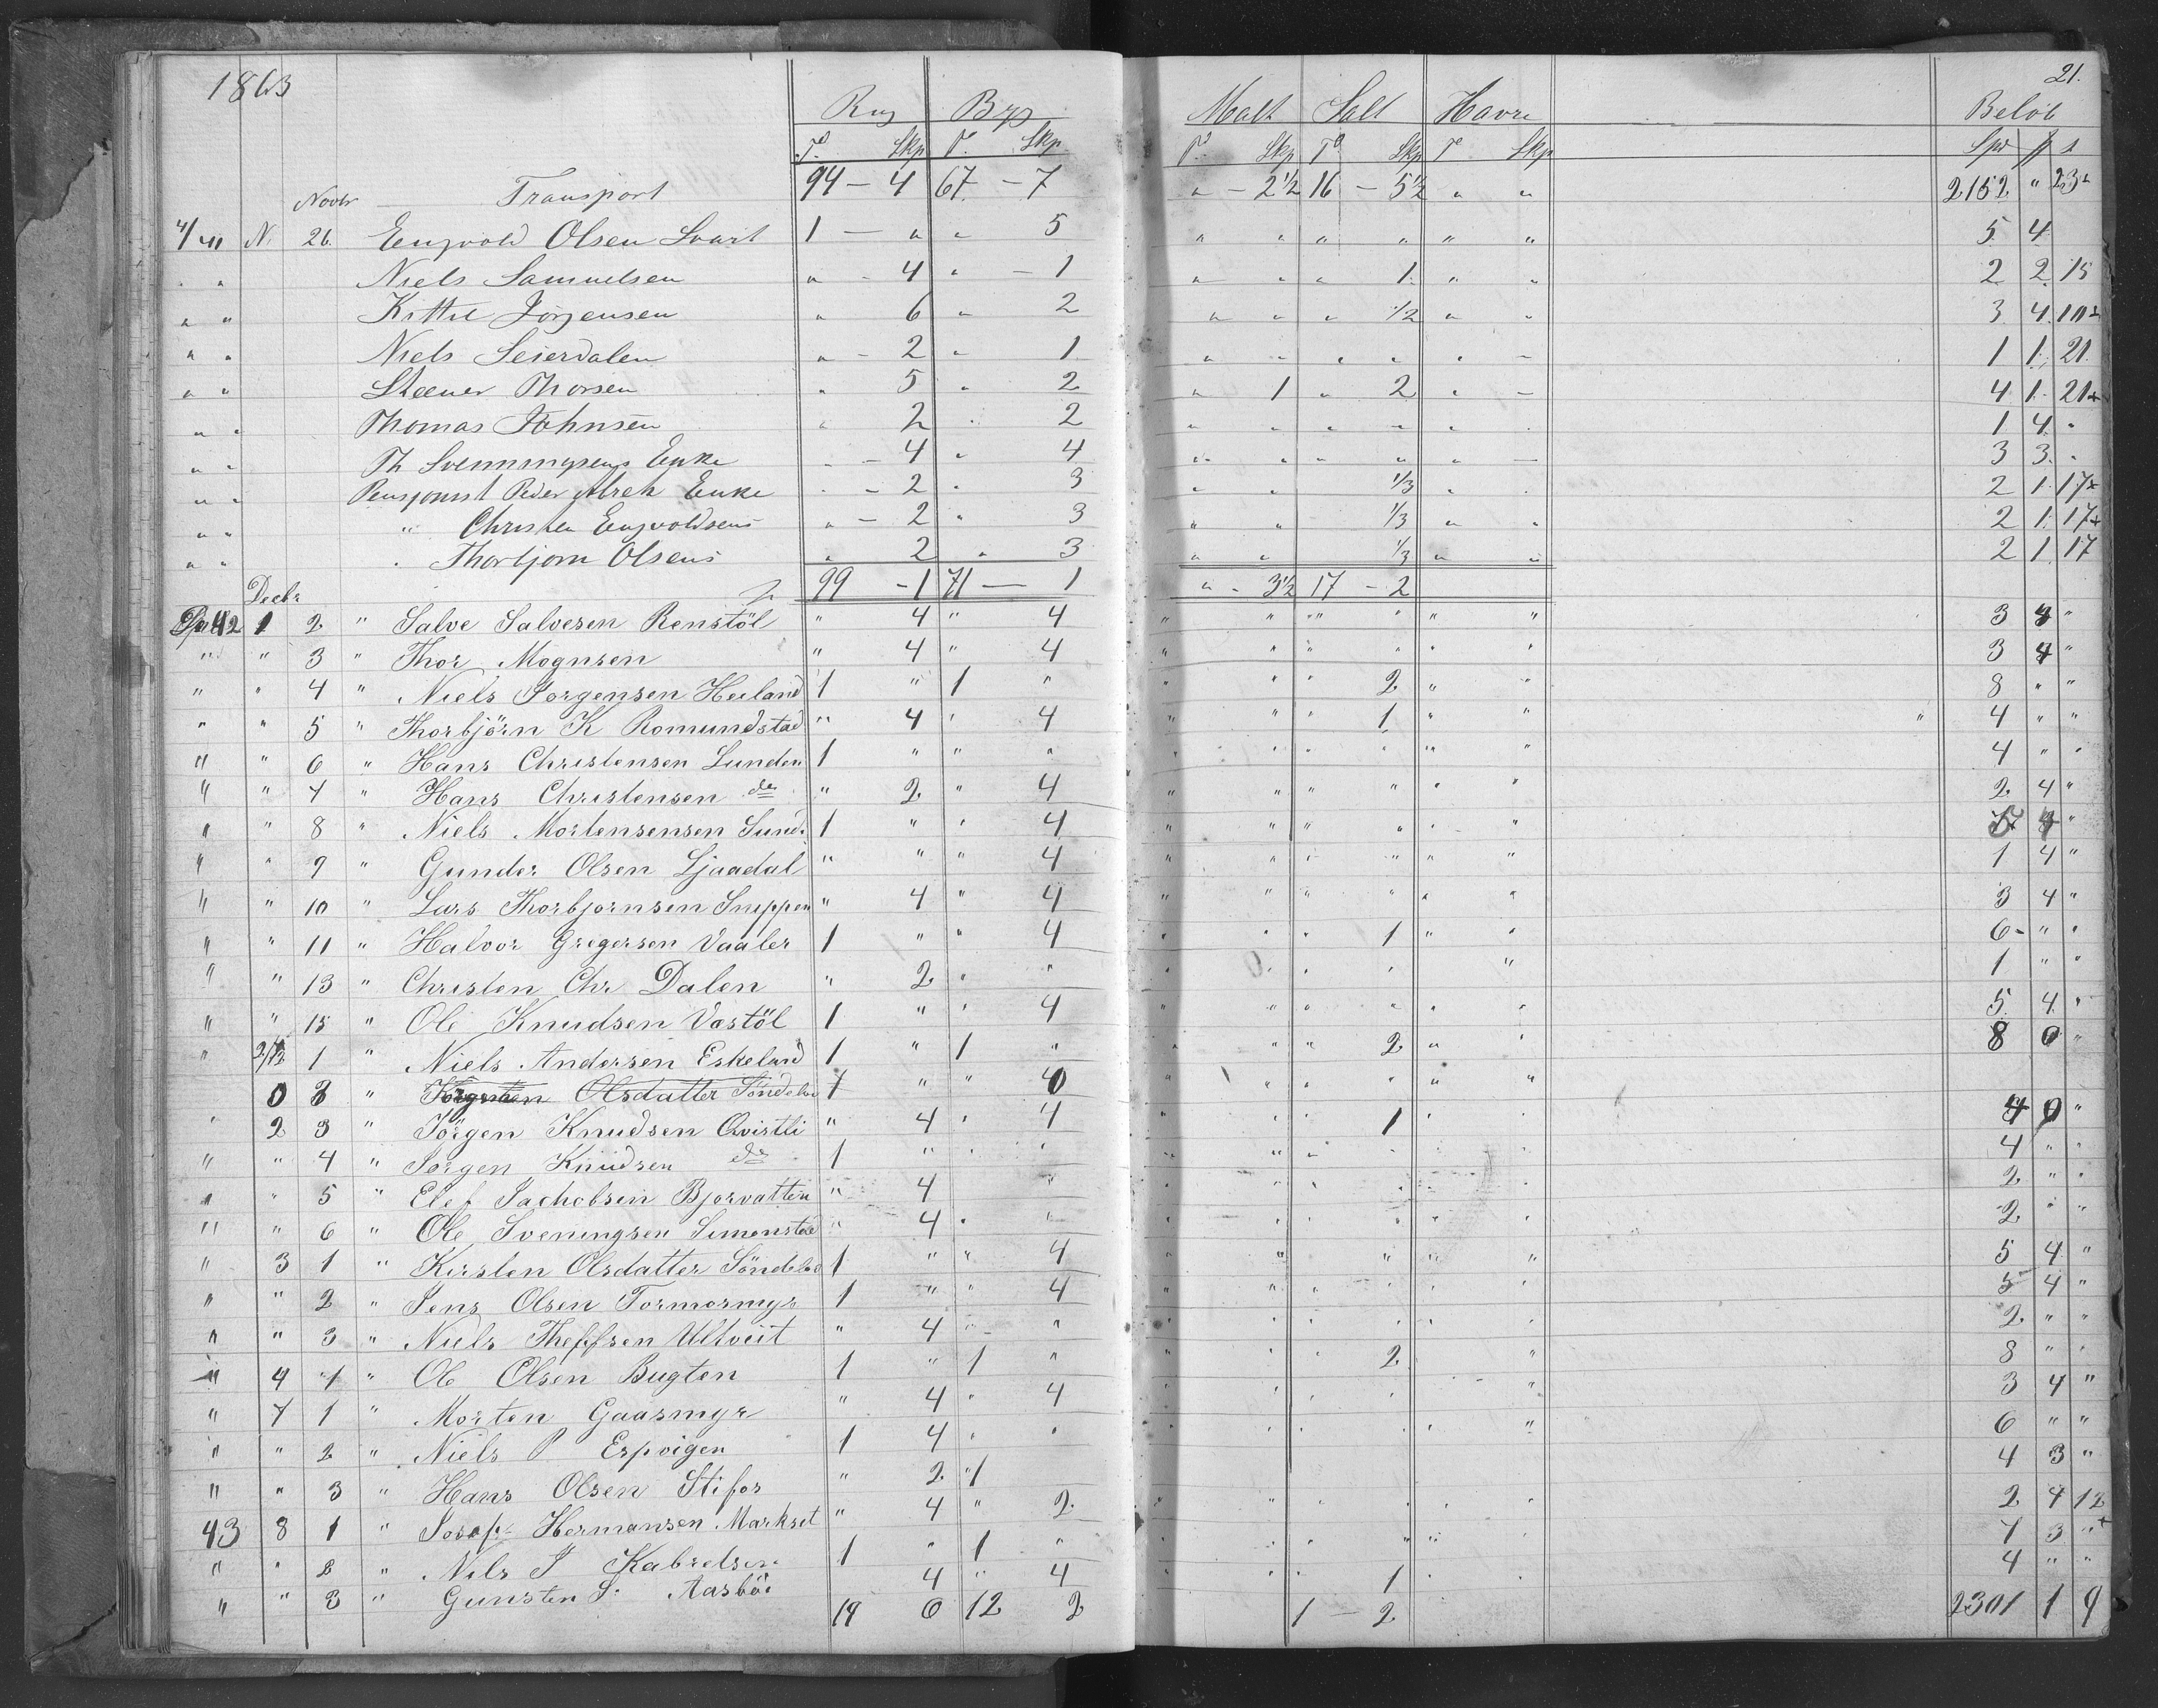 1863 21.
Rug Byg Malt Salt Havre Beløb
Tr. Skp T. Skp Tr. Skp Tr Skp Tr Skp Spd þ s
Novbr Transport 94 — 4 67 — 7 " - 2½ 16 — 5½ " " 2152 " 23
4/41 N. 26. Engvold Olsen Svart 1 — " " 5 " " " " " " 5 4
" " Niels Samuelsen " - 4 " — 1 " " " 1 " " 2 2 15
" " Kittil Jörgensen " 6 " 2 " " " ½ " " 3 4
" " Niels Seierdalen " - 2 " 1 " " " " " - 1 1 21
" " Steener Thorsen " 5 " 2 " 1 " 2 " - 4 1 21
" " Thomas Johnsen " 2 " 2 " " " " " " 1 4 "
" " Th Svenningsens Enke " - 4 " 4 " " " " " — 3 3 "
" " Pensjonist Peder Enke " - 2 " 3 " " 1/3 " " 2 1 17
" " " Christen Engvoldsens " - 2 " 3 " " 1/3 " " 2 1 17
" " " Thorbjorn Olsens " 2 " 3 " " 1/3 " " 2 1 17
Decbr 99 - 1 71 — 1 " - 3½ 17 - 2
42 1 2 " Salve Salvesen Renstöl " 4 " 4 " " " " " " 3 4 "
" " 3 " Thor Mognsen " 4 " 4 " " " " " " 3 4 "
" " 4 " Niels Jorgensen Heiland 1 " 1 " " " " 2 " " 8 " "
" " 5 " Thorbjörn K Romundstad " 4 " 4 " " " 1 " " 4 " "
" " 6 " Hans Christensen Lunden 1 " " " " " " " " " 4 " "
" " 7 " Hans Christensen do " 2 " 4 " " " " " " 2 4 "
" " 8 " Niels Mortensensen Sund. 1 " " 4 " " " " " " 4 "
" " 9 " Gunder Olsen Ljaadal " " " 4 " " " " " " 1 4 "
" " 10 " Lars Thorbjornsen Snippen " 4 " 4 " " " " " " 3 4 "
" " 11 " Halvor Gregersen Vaaler 1 " " 4 " " " 1 " " 6 " "
" " 13 " Christen Chr Dalen " 2 " " " " " " " " 1 " "
" " 15 " Ole Knudsen Vastöl 1 " " 4 " " " " " " 5 4 "
" 2/12 1 " Niels Andersen Eskeland 1 " 1 " " " " 2 " " 8 0 "
0 3 " Olsdatter Söndeled 1 " " 0 " " " " " "
" 2 3 " Jörgen Knudsen Qvistli " 4 " 4 " " " 1 " " 4 0 "
" " 4 " Jörgen Knudsen do 1 " " " " " " " " " 4 " "
" " 5 " Elef Jachobsen Bjorvatten " 4 " " " " " " " 2 " "
" " 6 " Ole Sveningsen Simonstad " 4 " " " " " " " " 2 " "
" 3 1 " Kirsten Olsdatter Söndeled 1 " " 4 " " " " " 5 4 "
" " 2 " Jens Olsen Tormosmyr 1 " " 4 " " " " " " 5 4 "
" " 3 " Niels Theffsen Ultveit " 4 " " " " " " " " 2 " "
" 4 1 " Ole Olsen Bugten 1 " 1 " " " " 2 " 8 " "
" 7 1 " Morten Gaasmyr " 4 " 4 " " " " " 3 4 "
" " 2 " Niels P Espvigen 1 4 " " " " " " " 6 " "
" " 3 " Hans Olsen Stifos " 2 " 1 4 3 "
43 8 1 " Josef Hermansen Markset " 4 " 2 " " " " " " 2 4 12
" " 2 " Nils J Kabrelsen 1 " 1 " " " " " " " 7 3 "
" " 3 " Gunsten S. Aasböe 4 " 4 " " " 1 " " 4 " "
19 6 12 2 1 — 2 2301 1 9